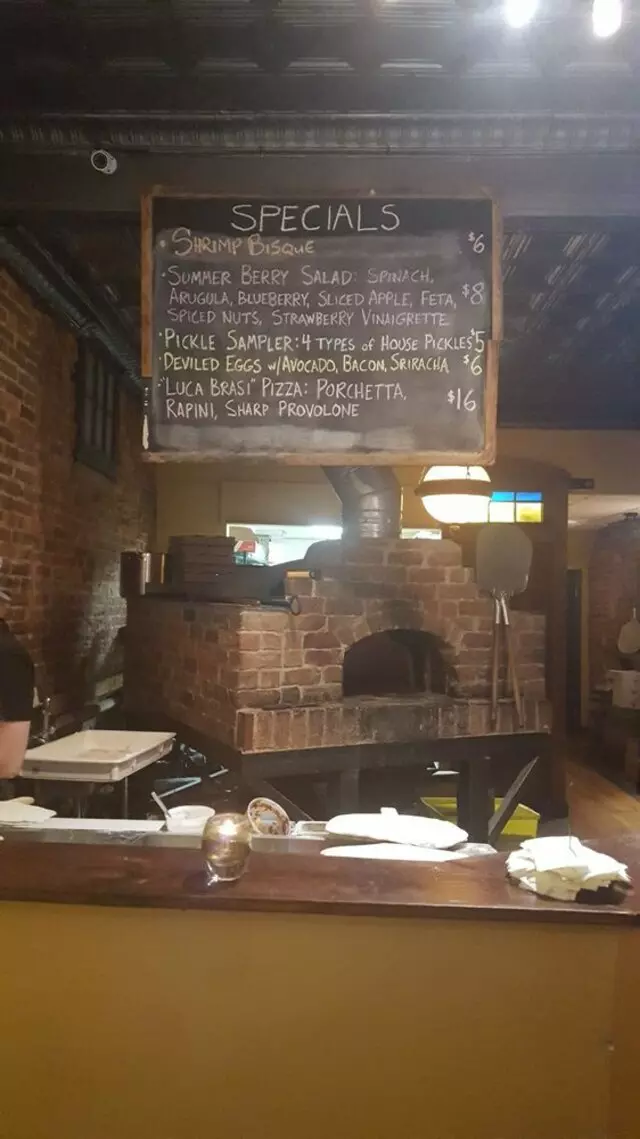 SPECIALS
• SHRIMP BISQUE $6
• SUMMER BERRY SALAD: SPINACH,
ARUGULA, BLUEBERRY, SLICED APPLE, FETA, $8
SPICED NUTS, STRAWBERRY VINAIGRETTE
• PICKLE SAMPLER: 4 TYPES of HOUSE PICKLES $5
• DEVILED EGGS w/AVOCADO, BACON, SRIRACHA $6
• "LUCA BRASI" PIZZA: PORCHETTA, $16
RAPINI, SHARP PROVOLONE